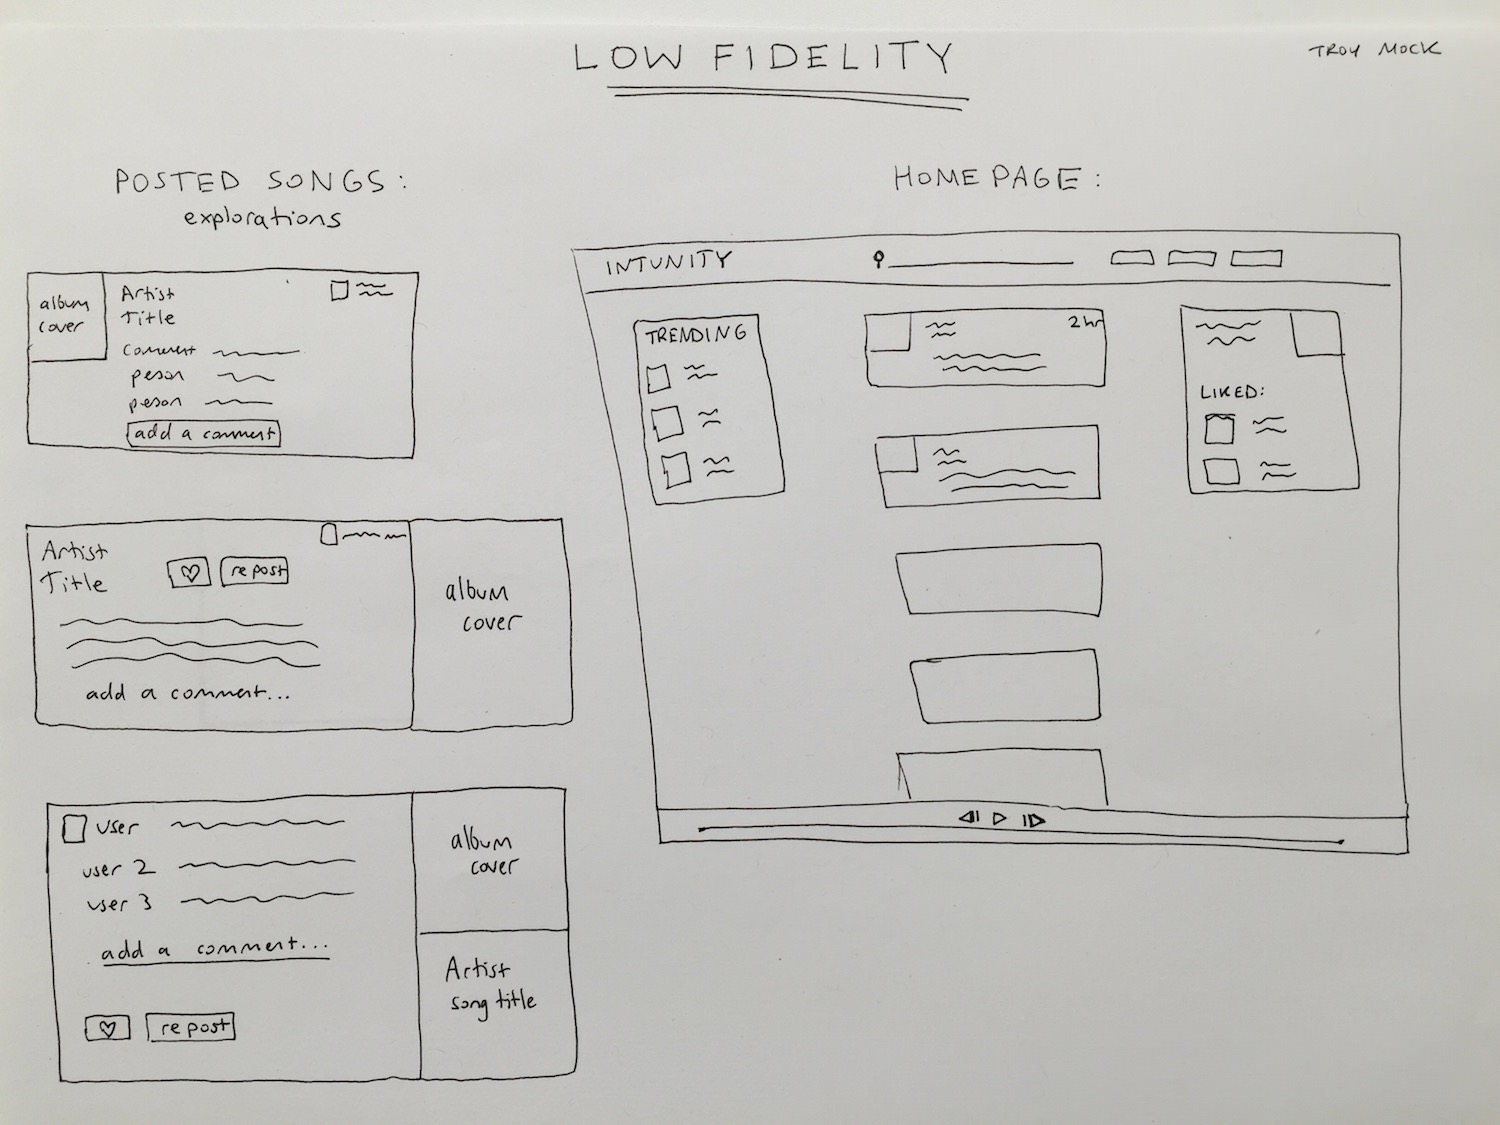 LOW FIDELITY
TROY MOCK
POSTED SONGS:
explorations
album
cover
Artist
Title
comment
peson
person
add a comment
Artist
Title
repost
add a comment...
album
cover
user
user 2
user 3
add a comment...
repost
album
cover
Artist
song title
HOMEPAGE:
INTUNITY
TRENDING
2hr
LIKED: